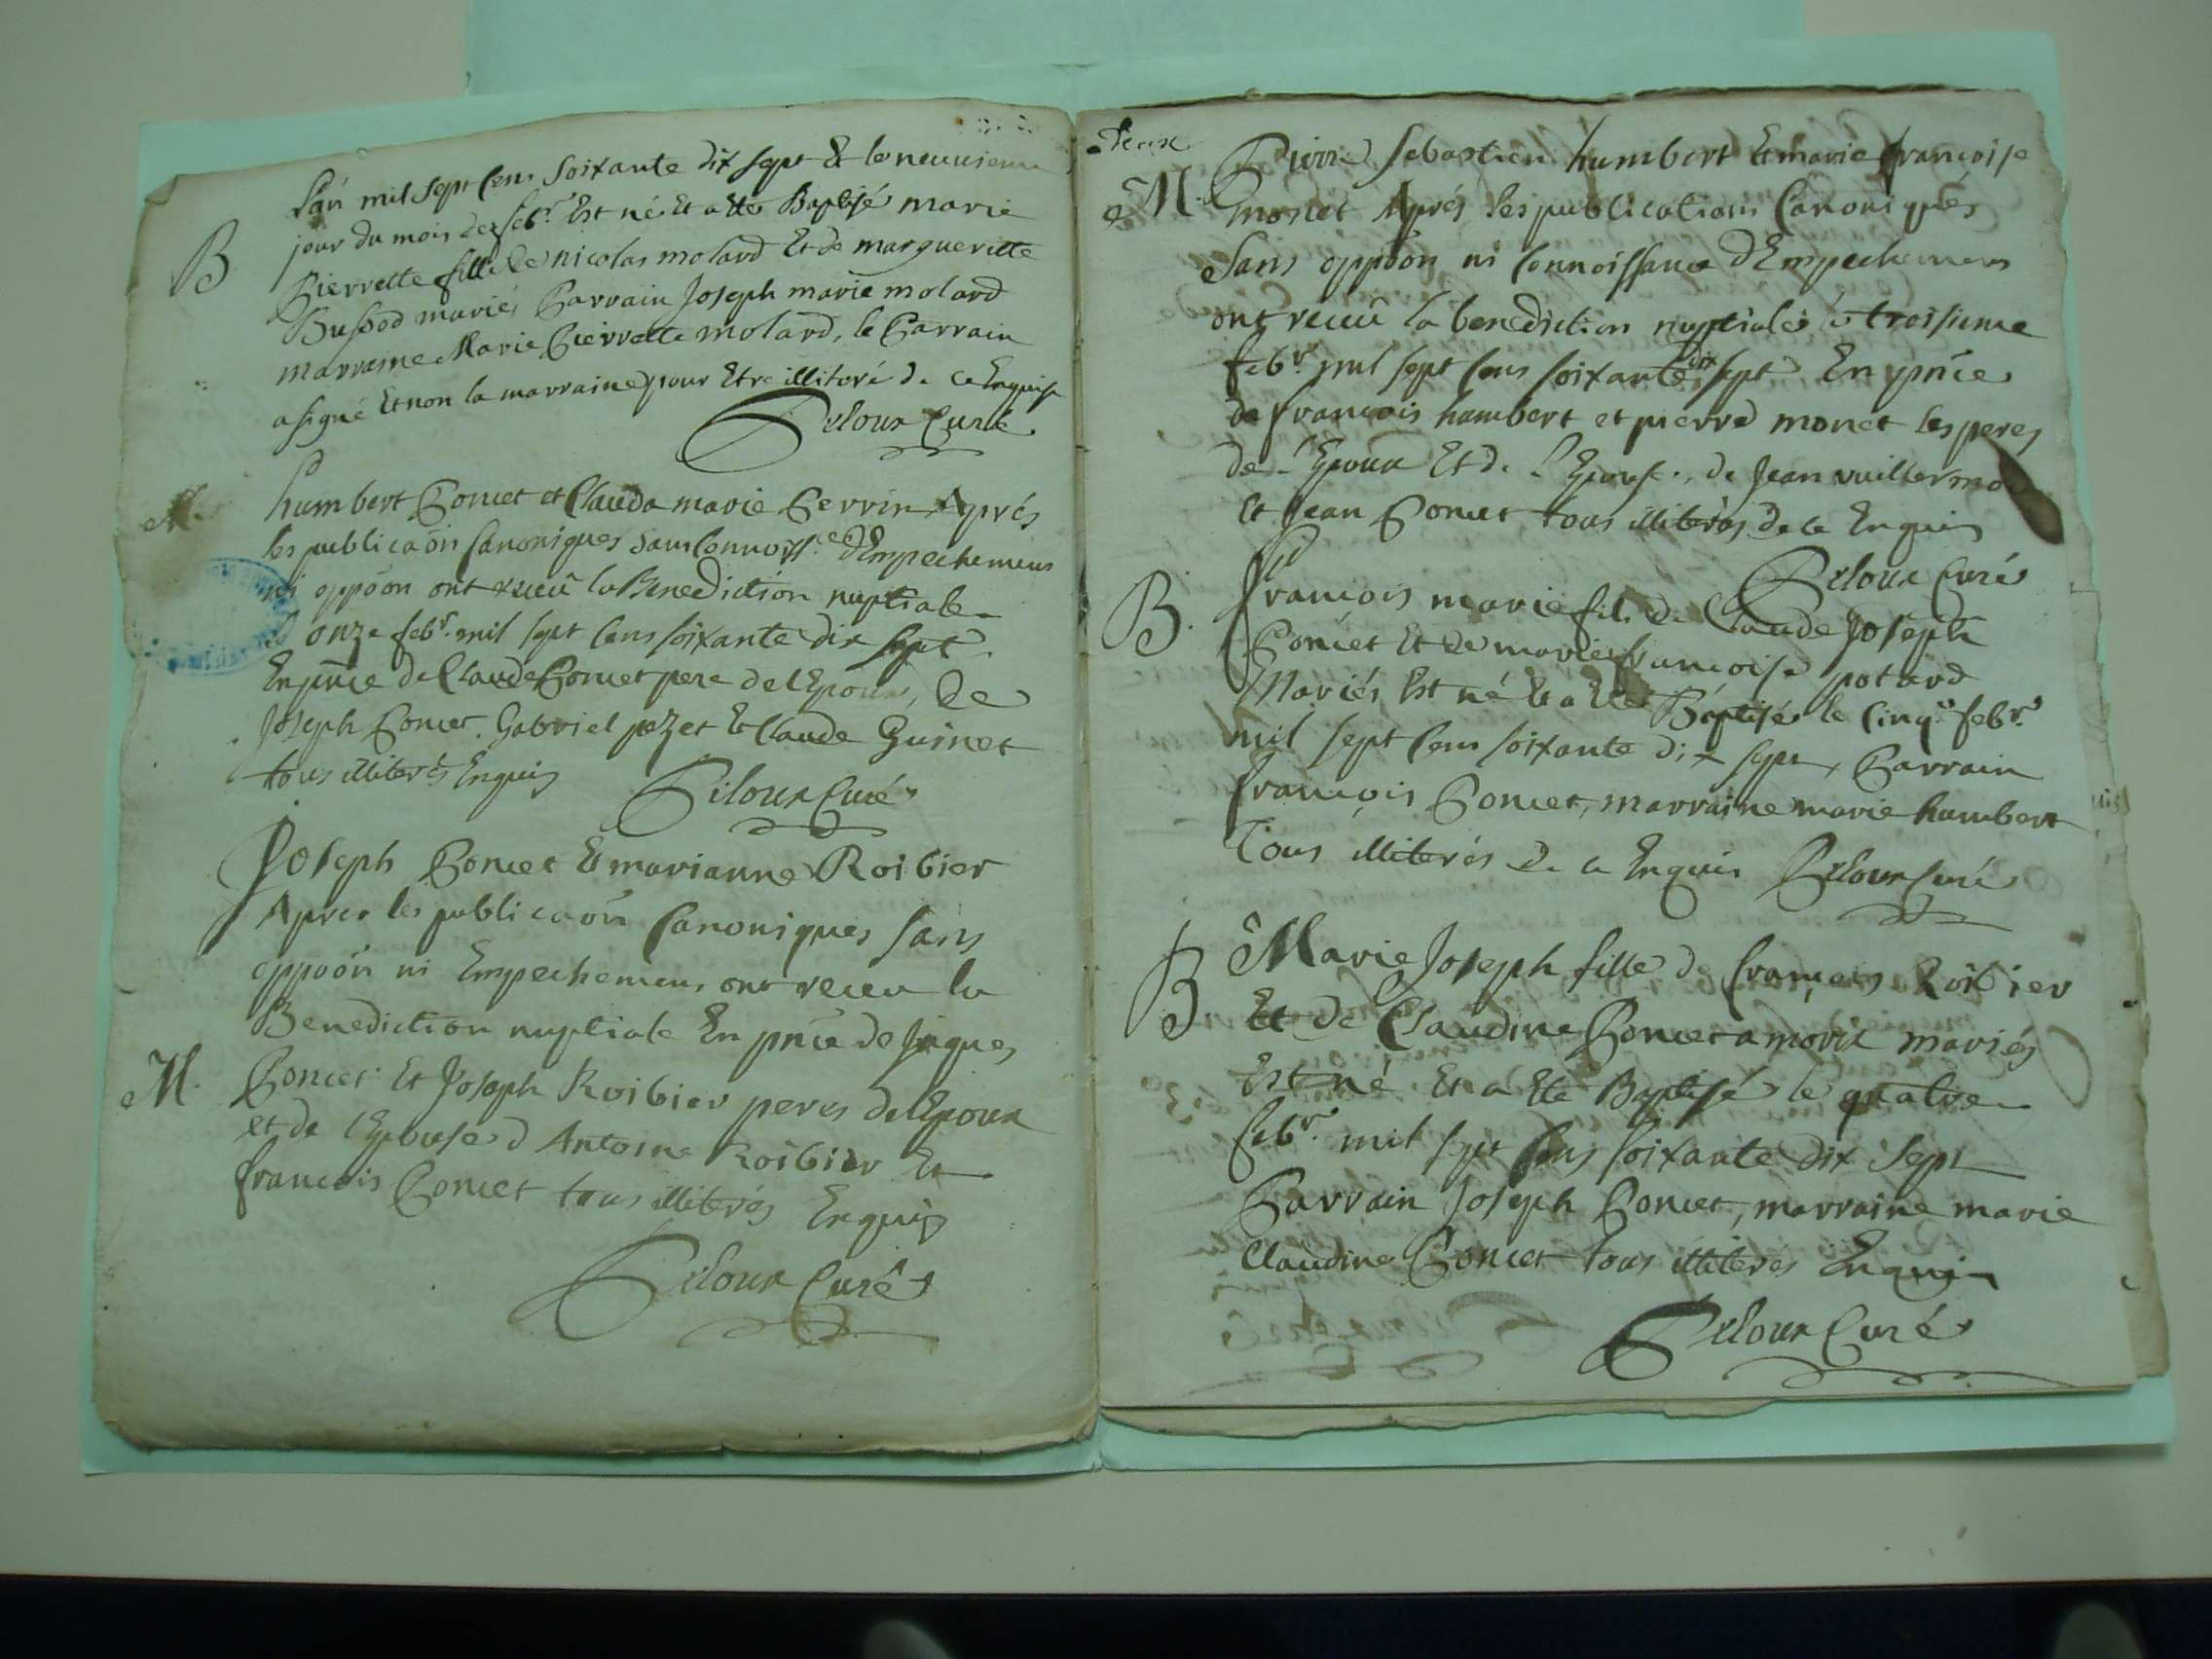 L'an mil sept cens soixante dix sept Et le neuvieme
B
jour du mois de febr. Est né Et a Eté Baptisé marie
Pierrette fille de nicolas molard Et de margueritte
Bussod mariés Parrain Joseph marie molard
marraine Marie Pierrette molard, le Parrain
a signé Et non la marraine pour Etre illiteré de ce Enquise
Piloux Curé
M.
humbert Poncet et Clauda marie Perrin Aprés
les publicaôn Canoniques sans Connoiss.ce d'Empechemens
ni oppôon ont receû la Benediction nuptiale
le onze febr. mil sept cens soixante dix sept
En pnce de Claude Poncet pere de l'Epoux, de
Joseph Poncet. Gabriel pezet Et Claude Guinet
tous illiterés Enquis
Piloux Curé
Joseph Poncet Et marianne Roibier
Aprés les publicaôn Canoniques sans
oppoôn ni Empechemens ont receu la
Benediction nuptiale En pnce de Jaques
M.
Poncet Et Joseph Roibier peres de l'Epoux
et de l'Epouse d'Antoine Roibier Et
francois Poncet tous illiterés Enquis
Piloux Curé
deux
Pierre sebastien humbert Et marie françoise
M
monet Aprés les publications Canoniques
sans oppôon ni Connoissance d'Empechemens
ont receû la benediction nuptiale le troisieme
febr. mil sept cens soixante dix sept En pnce
de francois humbert et pierre monet les peres
de l'Epoux Et de l'Epouse, de Jean vuillermoz
Et Jean Poncet tous illiterés de ce Enquis
Piloux Curé
B.
francois marie fils de Claude Joseph
Poncet Et de marie francoise potard
Mariés Est né Et a Eté Baptisé le Cinq. febr.
mil sept cens soixante dix sept, Parrain
françois Poncet, marraine marie humbert
Tous illiterés de ce Enquis Piloux Curé
B.
Marie Joseph fille de françois Roibier
Et de Claudine Poncet amorix mariés
Est né Et a Eté Baptisé le quatre
febr. mil sept cens soixante dix sept
Parrain Joseph Poncet, marraine marie
Claudine Poncet tous illiterés Enquis
Piloux Curé